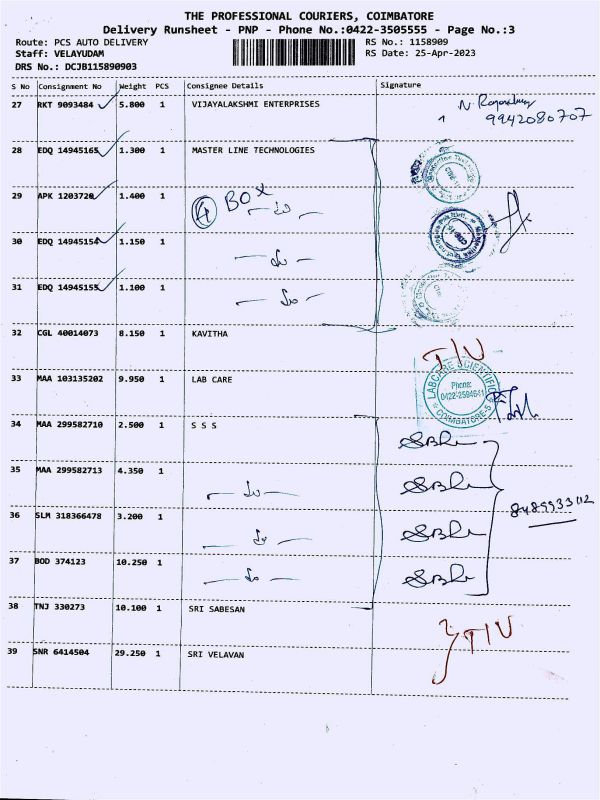 THE PROFESSIONAL COURIERS, COIMBATORE
Delivery Runsheet - PNP - Phone No.:0422-3505555 - Page No.:3
Route: PCS AUTO DELIVERY
RS No.: 1158909
Staff: VELAYUDAM
RS Date: 25-Apr-2023
DRS No.: DCJB115890903
S No Consignment No Weight PCS Consignee Details Signature
27 RKT 9093484 5.800 1 VIJAYALAKSHMI ENTERPRISES
1 9942080707
28 EDQ 14945165 1.300 1 MASTER LINE TECHNOLOGIES
29 APK 1203720 1.400 1
4 BOX
30 EDQ 14945154 1.150 1
31 EDQ 14945155 1.100 1
32 CGL 40014073 8.150 1 KAVITHA
33 MAA 103135202 9.950 1 LAB CARE
LABCARE SCIENTIFIC
Phone:
COIMBATORE-5
34 MAA 299582710 2.500 1 S S S
35 MAA 299582713 4.350 1
36 SLM 318366478 3.200 1
37 BOD 374123 10.250 1
38 TNJ 330273 10.100 1 SRI SABESAN
39 SNR 6414504 29.250 1 SRI VELAVAN